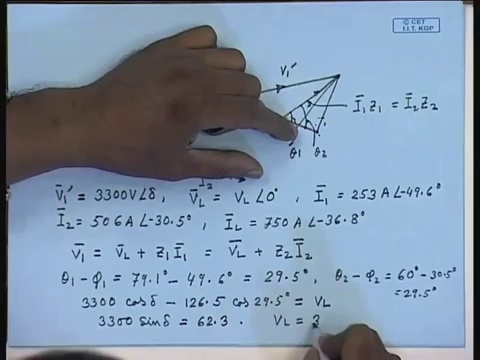 © CET
I.I.T. KGP
V₁′
Ī₁Z₁ = Ī₂Z₂
θ₁ θ₂
I₂
V̄₁′ = 3300V∠δ, V̄L = VL∠0°, Ī₁ = 253A∠-49.6°
Ī₂ = 506A∠-30.5°, ĪL = 750A∠-36.8°
V̄₁ = V̄L + Z₁Ī₁ = V̄L + Z₂Ī₂
θ₁-φ₁ = 79.1°-49.6° = 29.5°, θ₂-φ₂ = 60°-30.5°
=29.5°
3300 cosδ - 126.5 cos29.5° = VL
3300 sinδ = 62.3. VL = 3